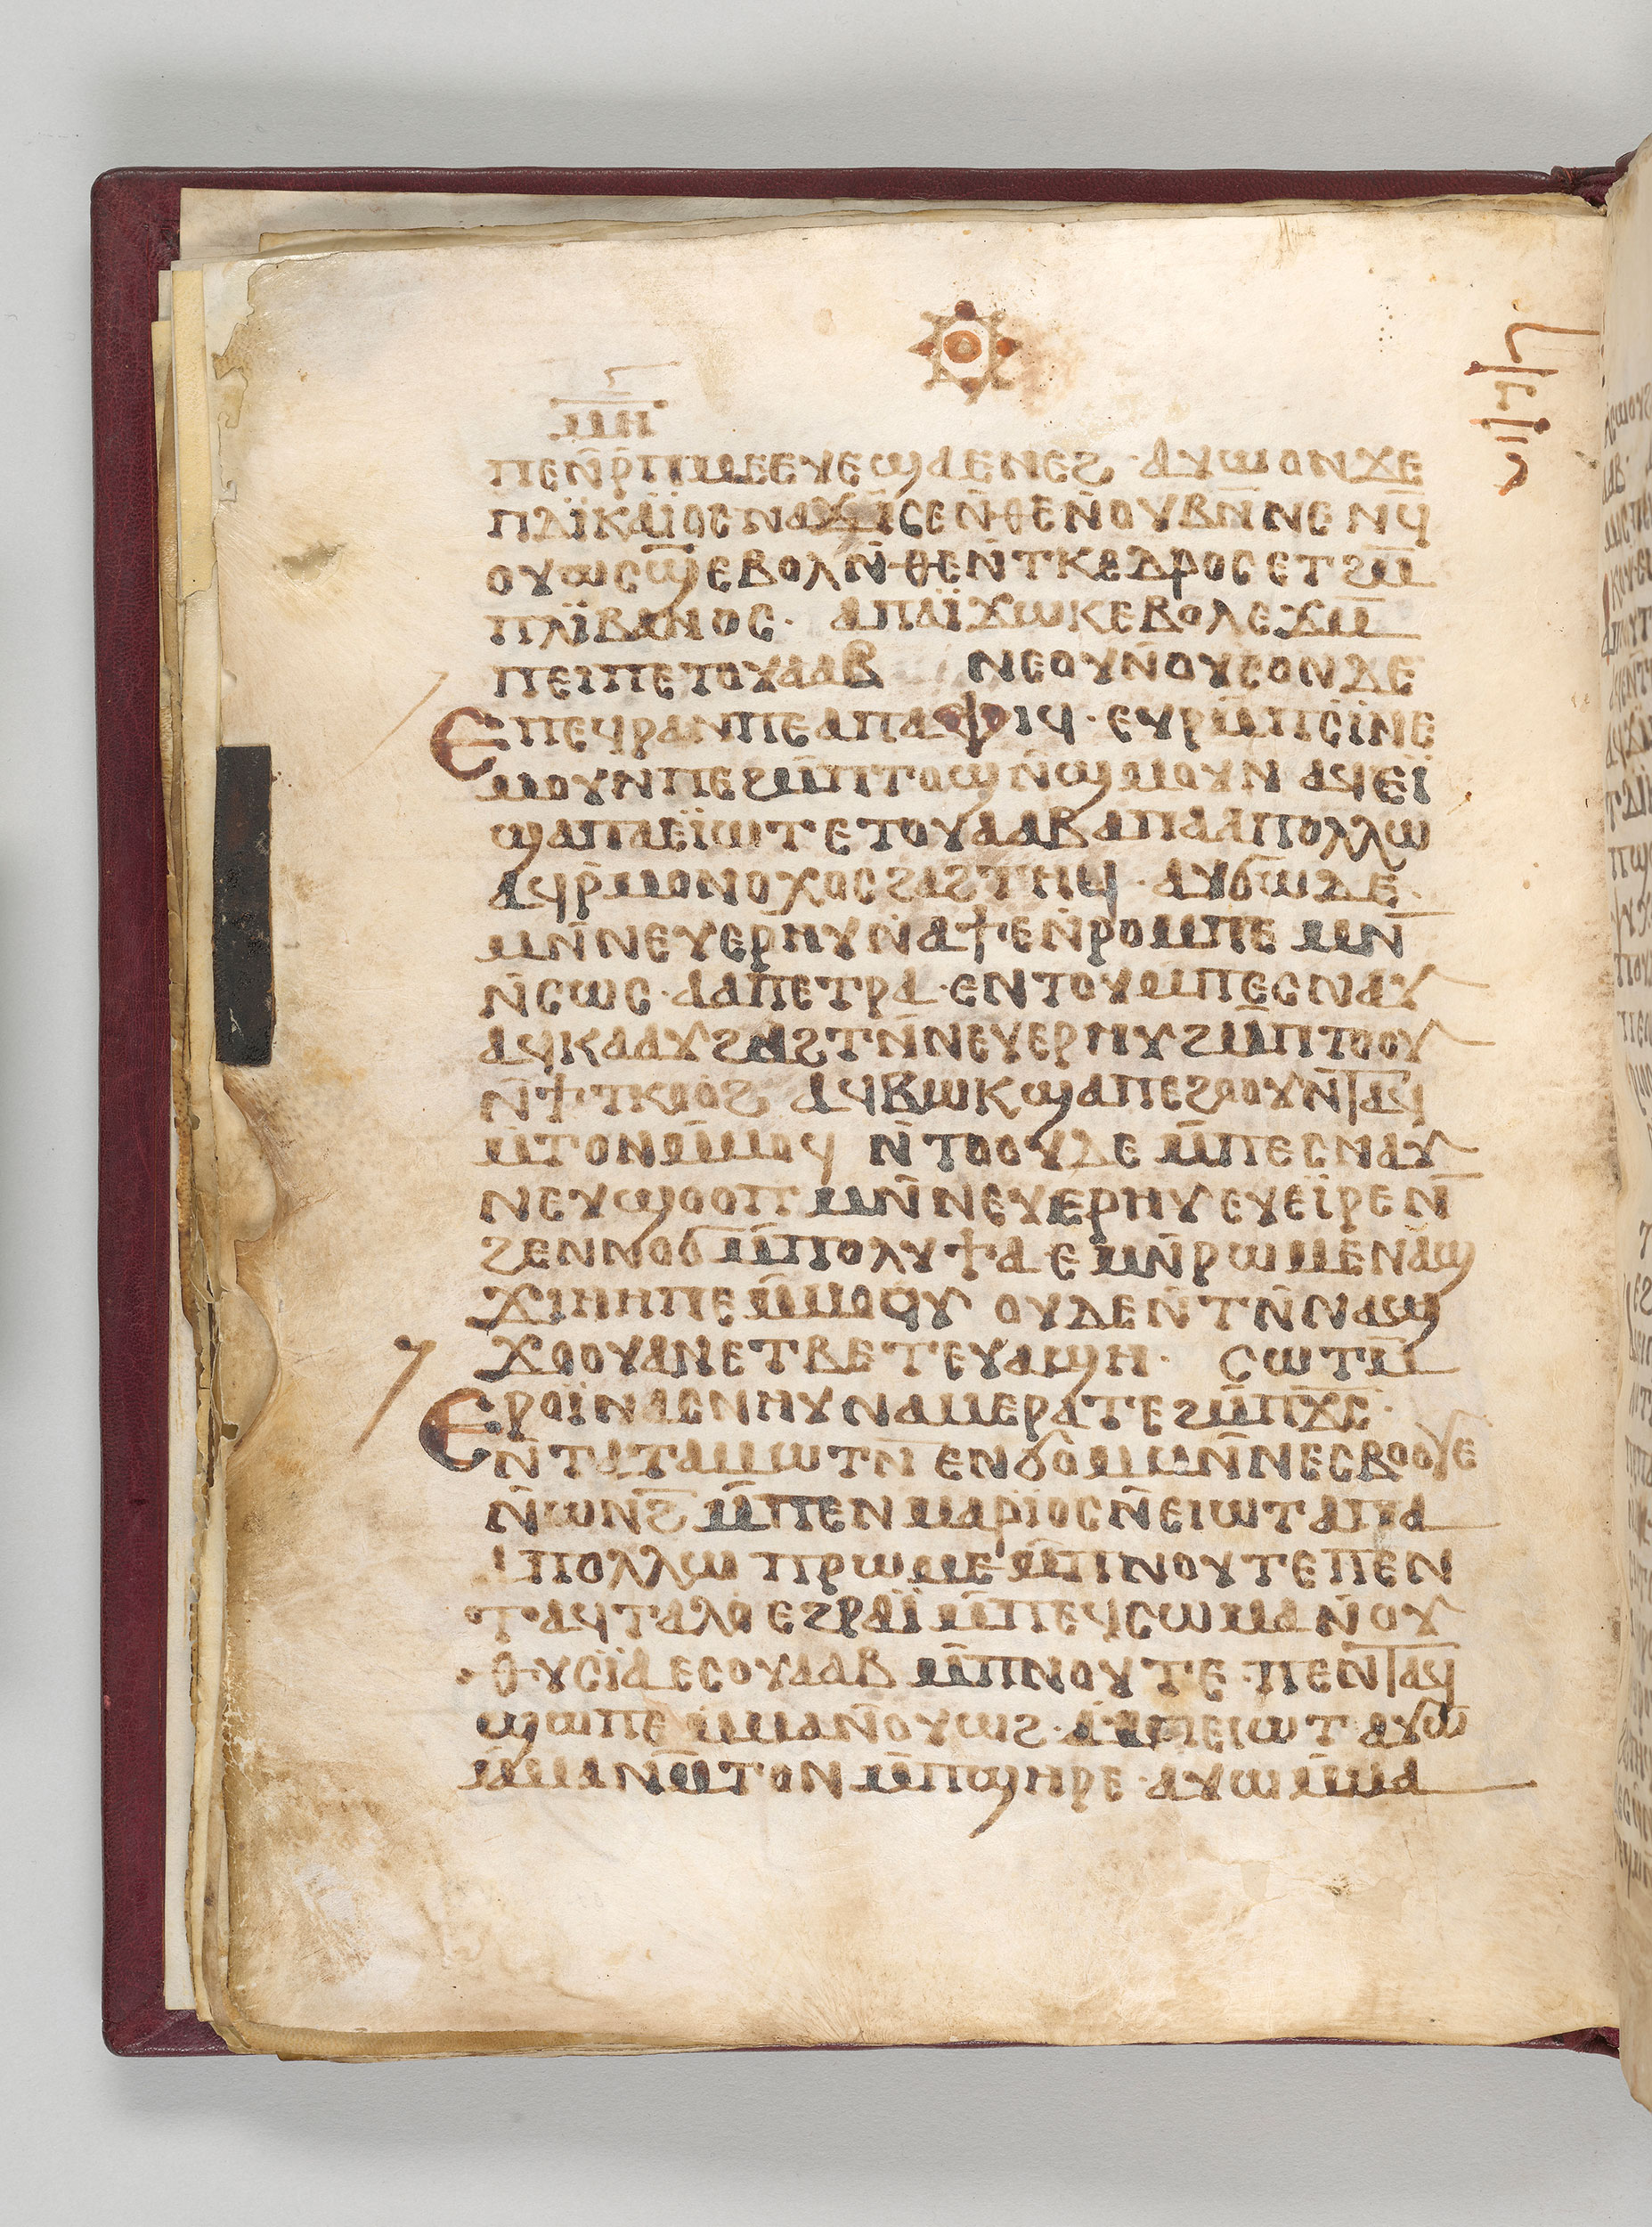 ⲙⲏ
ⲡⲉⲛ̄ⲣ̄ⲡⲙⲉⲉⲩⲉϣⲁⲉⲛⲉϩ · ⲁⲩⲱⲟⲛϫⲉ
ⲡⲇⲓ̈ⲕⲁⲓ̈ⲟⲥⲛⲁϫⲓⲥⲉⲛ̄ⲑⲉⲛ̄ⲟⲩⲃⲛ̄ⲛⲉⲛϥ̄
ⲟⲩⲱⲥϣ̄ⲉⲃⲟⲗⲛ̄ⲑⲉⲛ̄ⲧⲕⲉⲇⲣⲟⲥⲉⲧϩⲙ̄
ⲡⲗⲓ̈ⲃⲁⲛⲟⲥ · ⲁⲡⲁⲓ̈ϫⲱⲕⲉⲃⲟⲗⲉϫⲙ̄
ⲡⲉⲓⲡⲉⲧⲟⲩⲁⲁⲃ ⲛⲉⲟⲩⲛ̄ⲟⲩⲥⲟⲛⲇⲉ
ⲉⲡⲉϥⲣⲁⲛⲡⲉⲁⲡⲁⲫⲓϥ · ⲉⲩⲣⲙ̄ⲡⲥⲓ̈ⲛⲉ
ⲙⲟⲩⲛⲡⲉϩⲙ̄ⲡⲧⲟϣⲛ̄ϣⲙⲟⲩⲛ ⲁϥⲉⲓ̈
ϣⲁⲡⲁⲉⲓ̈ⲱⲧⲉⲧⲟⲩⲁⲁⲃⲁⲡⲁⲁⲡⲟⲗⲗⲱ
ⲁϥⲣ̄ⲙⲟⲛⲟⲭⲟⲥϩⲁϩⲧⲏϥ · ⲁⲩϭⲱⲇⲉ ·
ⲙⲛ̄ⲛⲉⲩⲉⲣⲏⲩⲛ̄ⲁϯⲉⲛ̄ⲣⲟⲙⲡⲉ ⲙⲛ̄
ⲛ̄ⲥⲱⲥ · ⲁⲁⲡⲉⲧⲣⲁ · ⲉⲛⲧⲟⲩⲙ̄ⲡⲉⲥⲛⲁⲩ
ⲁϥⲕⲁⲁⲩϩⲁϩⲧⲛ̄ⲛⲉⲩⲉⲣⲏⲩϩⲙ̄ⲡⲧⲟⲟⲩ
ⲛ̄ϯⲧⲕⲟⲟϩ ⲁϥⲃⲱⲕϣⲁⲡⲉϩⲟⲟⲩⲛ̄ⲧⲁϥ
ⲙ̄ⲧⲟⲛⲙ̄ⲙⲟϥ ⲛ̄ⲧⲟⲟⲩⲇⲉ ⲙ̄ⲡⲉⲥⲛⲁⲩ
ⲛⲉⲩϣⲟⲟⲡ ⲙⲛ̄ⲛⲉⲩⲉⲣⲏⲩ ⲉⲩⲉⲓ̈ⲣⲉⲛ̄
ϩⲉⲛⲛⲟϭⲙ̄ⲡⲟⲗⲩϯⲁ · ⲉⲙⲛ̄ⲣⲱⲙⲉⲛⲁϣ
ϫⲓⲏⲡⲉⲙ̄ⲙⲟⲟⲩ ⲟⲩⲇⲉⲛ̄ⲧⲛ̄ⲛⲁϣ
ϫⲟⲟⲩⲁⲛⲉⲧⲃⲉⲧⲉⲩⲁϣⲏ · ⲥⲱⲧⲙ̄
ⲉⲣⲟⲓ̈ⲛⲁⲥⲛⲏⲩⲛⲁⲙⲉⲣⲁⲧⲉϩⲙ̄ⲡⲭ̄ⲥ̄ ·
ⲛ̄ⲧⲁⲧⲁⲙⲱⲧⲛ ⲉⲛϭⲟⲙⲙⲛ̄ⲛⲉⲥⲃⲟⲟⲩⲉ
ⲛ̄ⲱⲛϩ̄ ⲙ̄ⲡⲉⲛⲙⲁⲣⲓⲟⲥⲛ̄ⲉⲓⲱⲧ ⲁⲡⲁ
ⲁⲡⲟⲗⲗⲱ ⲡⲣⲱⲙⲉⲙ̄ⲡⲛⲟⲩⲧⲉⲡⲉⲛ
ⲧⲁϥⲧⲁⲗⲟⲉϩⲣⲁⲓ̈ⲙ̄ⲡⲉϥⲥⲱⲙⲁⲛ̄ⲟⲩ
ⲑⲩⲥⲓ̈ⲁⲉⲥⲟⲩⲁⲁⲃ ⲙ̄ⲡⲛⲟⲩⲧⲉ · ⲡⲉⲛⲧⲁϥ
ϣⲱⲡⲉⲙ̄ⲙⲁⲛ̄ⲟⲩⲱϩ · ⲙ̄ⲡⲉⲓⲱⲧ ⲁⲩⲱ
ⲙ̄ⲙⲁⲛⲙ̄ⲧⲟⲛ ⲙ̄ⲡϣⲏⲣⲉ · ⲁⲩⲱⲙ̄ⲙⲁ